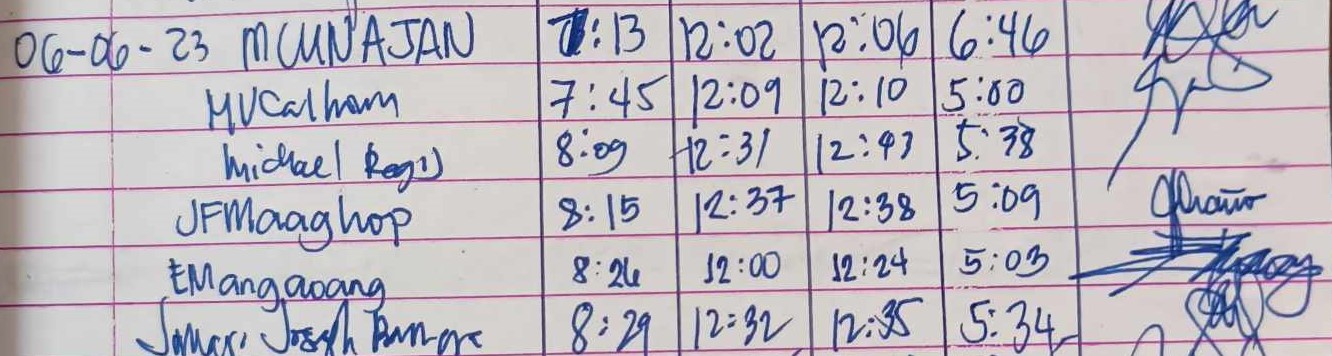 06-06-23 MCUNAJAN 7:13 12:02 12:06 6:46
MVCalham 7:45 12:09 12:10 5:00
Michael Regis 8:09 12:31 12:43 5:38
JFMaaghop 8:15 12:37 12:38 5:09
EMangaoang 8:26 12:00 12:24 5:03
Joseph 8:29 12:32 12:35 5:34